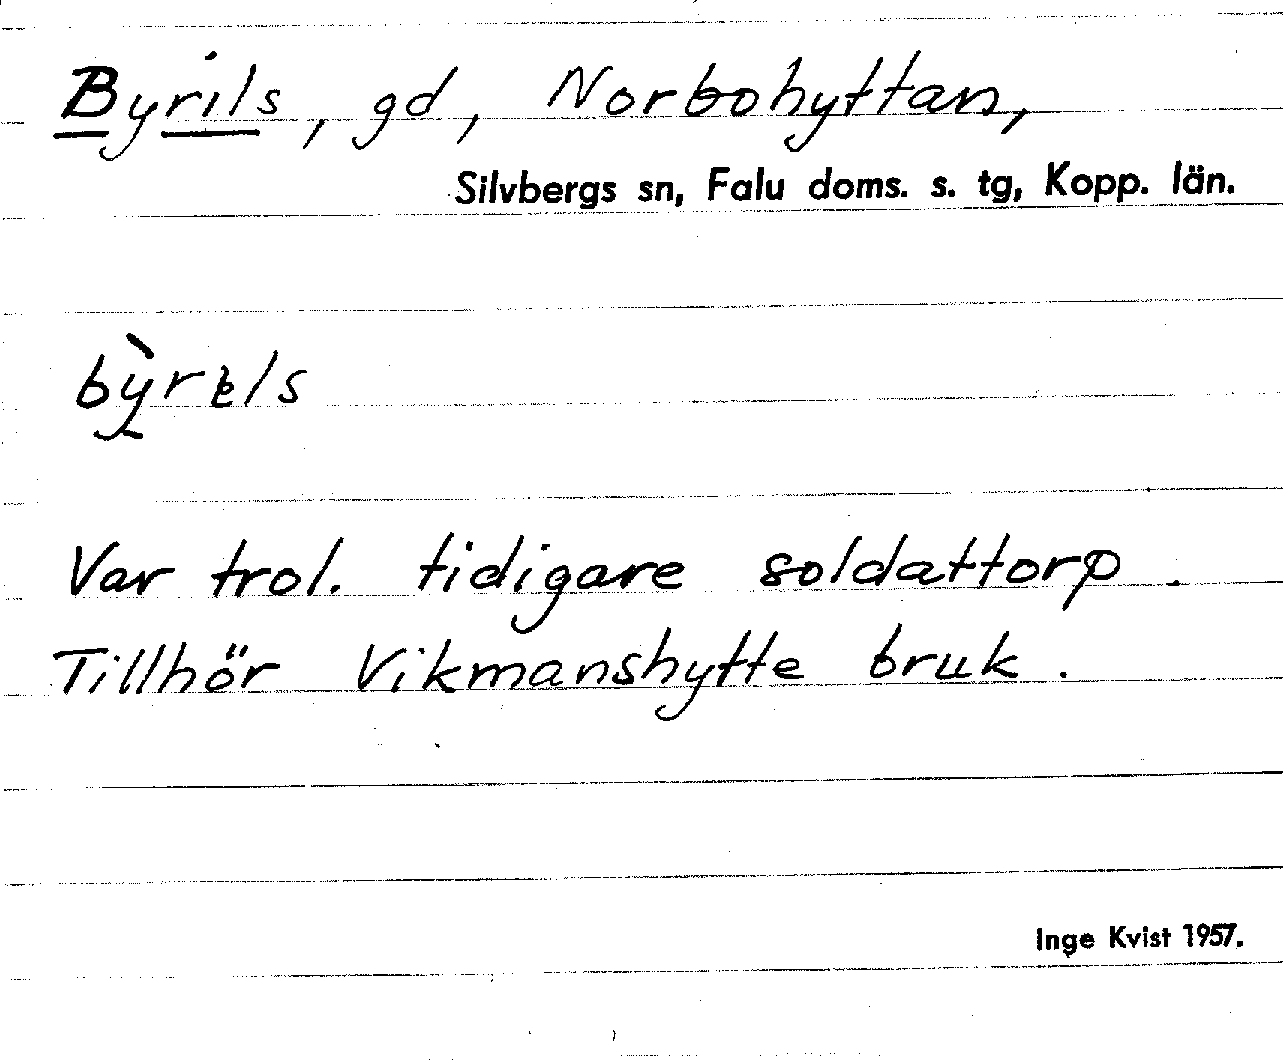 Byrils, gd, Norbohyttan,
Silvbergs sn, Falu doms. s. tg, Kopp. län.
Var trol. tidigare soldattorp.
Tillhör Vikmanshytte bruk.
Inge Kvist 1957.